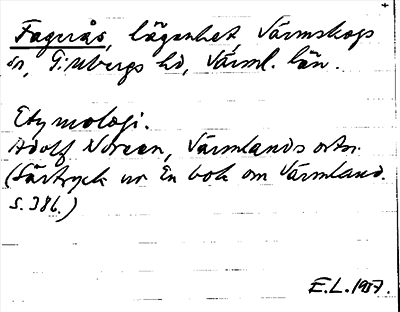 Fagerås, lägenhet, Värmskogs
sn, Gillbergs hd, Värml. län.
Etymologi.
Adolf Noreen, Värmlands ortn.
(Särtryck ur En bok om Värmland.
s. 386.)
E.L. 1957.